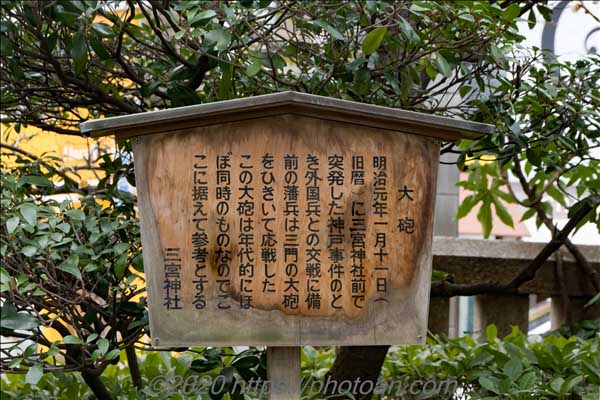 大砲
明治元年一月十一日（
旧暦）に三宮神社前で
突発した神戸事件のと
き外国兵との交戦に備
前の藩兵は三門の大砲
をひきいて応戦した
この大砲は年代的にほ
ぼ同時のものなのでこ
こに据えて参考とする
三宮神社
©2020 https://photoan.com